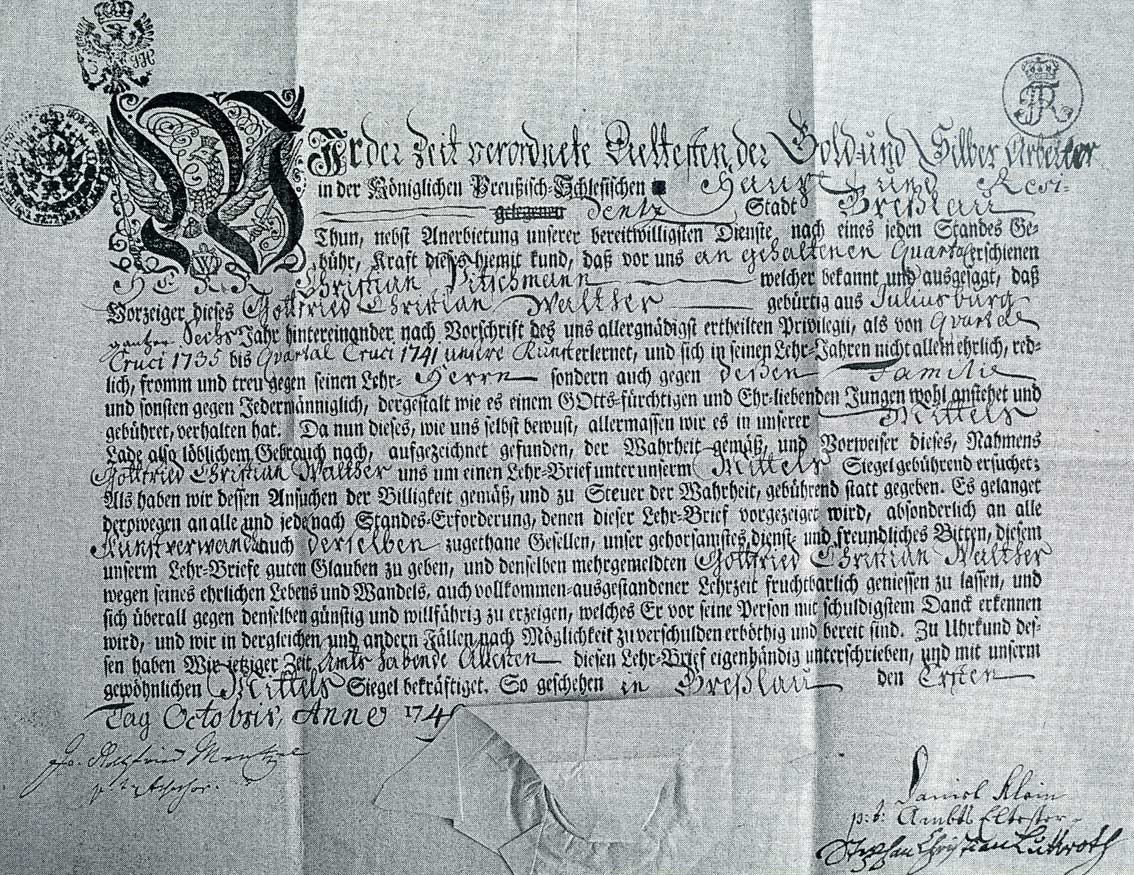 Wir der Zeit verordnete Aeltesten der Gold und Silber Arbeiter
in der Königlichen Preußisch-Schlesischen Haupt und Resi-
gelegenen dentz Stadt Breßlau
Thun, nebst Anerbietung unserer bereitwilligsten Dienste, nach eines jeden Standes Ge-
bühr, Kraft dieses hiemit kund, daß vor uns an gehaltenen Quartal erschienen
HERR Christian Pitschmann welcher bekannt und ausgesagt, daß
Vorzeiger dieses Gottfried Christian Walther gebürtig aus Juliusburg
gantzer Sechs Jahr hintereinander nach Vorschrift des uns allergnädigst ertheilten Privilegii, als von Quartal
Cruci 1735 bis Quartal Cruci 1741 unsere Kunst erlernet, und sich in seinen Lehr-Jahren nicht allein ehrlich, red-
lich, fromm und treu gegen seinen Lehr- Herrn sondern auch gegen deßen Familie
und sonsten gegen Jedermänniglich, dergestalt wie es einem GOtts-fürchtigen und Ehr-liebenden Jungen wohl anstehet und
gebühret, verhalten hat. Da nun dieses, wie uns selbst bewust, allermassen wir es in unserer Mittels
Lade also löblichem Gebrauch nach, aufgezeichnet gefunden, der Wahrheit gemäß, und Vorweiser dieses, Nahmens
Gottfried Christian Walther uns um einen Lehr-Brief unter unserm Mittels Siegel gebührend ersuchet;
Als haben wir dessen Ansuchen der Billigkeit gemäß, und zu Steuer der Wahrheit, gebührend statt gegeben. Es gelanget
derowegen an alle und jede nach Standes-Erforderung, denen dieser Lehr-Brief vorgezeiget wird, absonderlich an alle
Kunstverwandte auch derselben zugethane Gesellen, unser gehorsamstes, dienst- und freundliches Bitten, diesem
unserm Lehr-Briefe guten Glauben zu geben, und denselben mehrgemeldten Gottfried Christian Walther
wegen seines ehrlichen Lebens und Wandels, auch vollkommen-ausgestandener Lehrzeit fruchtbarlich geniessen zu lassen, und
sich überall gegen denselben günstig und willfährig zu erzeigen, welches Er vor seine Person mit schuldigstem Danck erkennen
wird, und wir in dergleichen und andern Fällen nach Möglichkeit zu verschulden erböthig und bereit sind. Zu Uhrkund des-
sen haben Wir jetziger Zeit Amts habende Eltesten diesen Lehr-Brief eigenhändig unterschrieben, und mit unserm
gewöhnlichen Mittels Siegel bekräftiget. So geschehen in Breßlau den Ersten
Tag Octobris, Anno 174
Gottfried Mentzel
Daniel Klein
p: t: Ambts Eltester
Stephan Christian Lüttroth